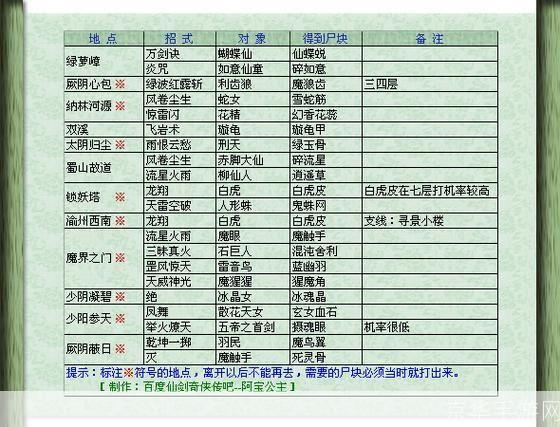 地 点 招 式 对 象 得到尸块 备 注
绿萝嶂 万剑诀 蝴蝶仙 仙蝶蜕
炎咒 如意仙童 碎如意
厥阴心包 ※ 绿波红露斩 利齿狼 魔狼齿 三四层
纳林河源 ※ 风卷尘生 蛇女 雪蛇筋
惊雷闪 花精 幻香花蕊
双溪 飞岩术 璇龟 璇龟甲
太阴归尘 ※ 雨恨云愁 刑天 绿玉骨
蜀山故道 风卷尘生 赤脚大仙 碎流星
流星火雨 柳仙人 逍遥草
锁妖塔 ※ 龙翔 白虎 白虎皮 白虎皮在七层打机率较高
天雷空破 人形蛛 鬼蛛网
渝州西南 ※ 龙翔 白虎 白虎皮 支线：寻景小楼
魔界之门 ※ 流星火雨 魔眼 魔触手
三昧真火 石巨人 混沌舍利
罡风惊天 雷音鸟 蓝幽羽
天威神光 魔猩猩 猩魔角
少阴凝碧 ※ 绝 冰晶女 冰魂晶
少阳参天 ※ 凤舞 散花天女 玄女血石
举火燎天 五帝之首剑 摄魂眼 机率很低
厥阴蔽日 ※ 乾坤一掷 羽民 魔鸟翼
灭 魔触手 死灵骨
提示：标注※符号的地点，离开以后不能再去，需要的尸块必须当时就打出来。
[ 制作：百度仙剑奇侠传吧--阿宝公主 ]